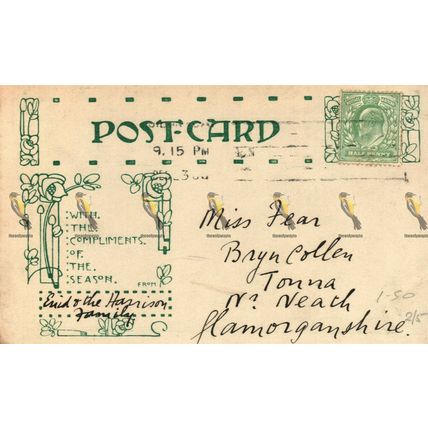 POST-CARD
9. 15 PM
HALF PENNY
WITH
THE
COMPLIMENTS
OF
THE
SEASON.
FROM
Enid & the Harrison
Family
Miss Fear
Bryn Collen
Tonna
Nr Neath
Glamorganshire.
1-50
2/5